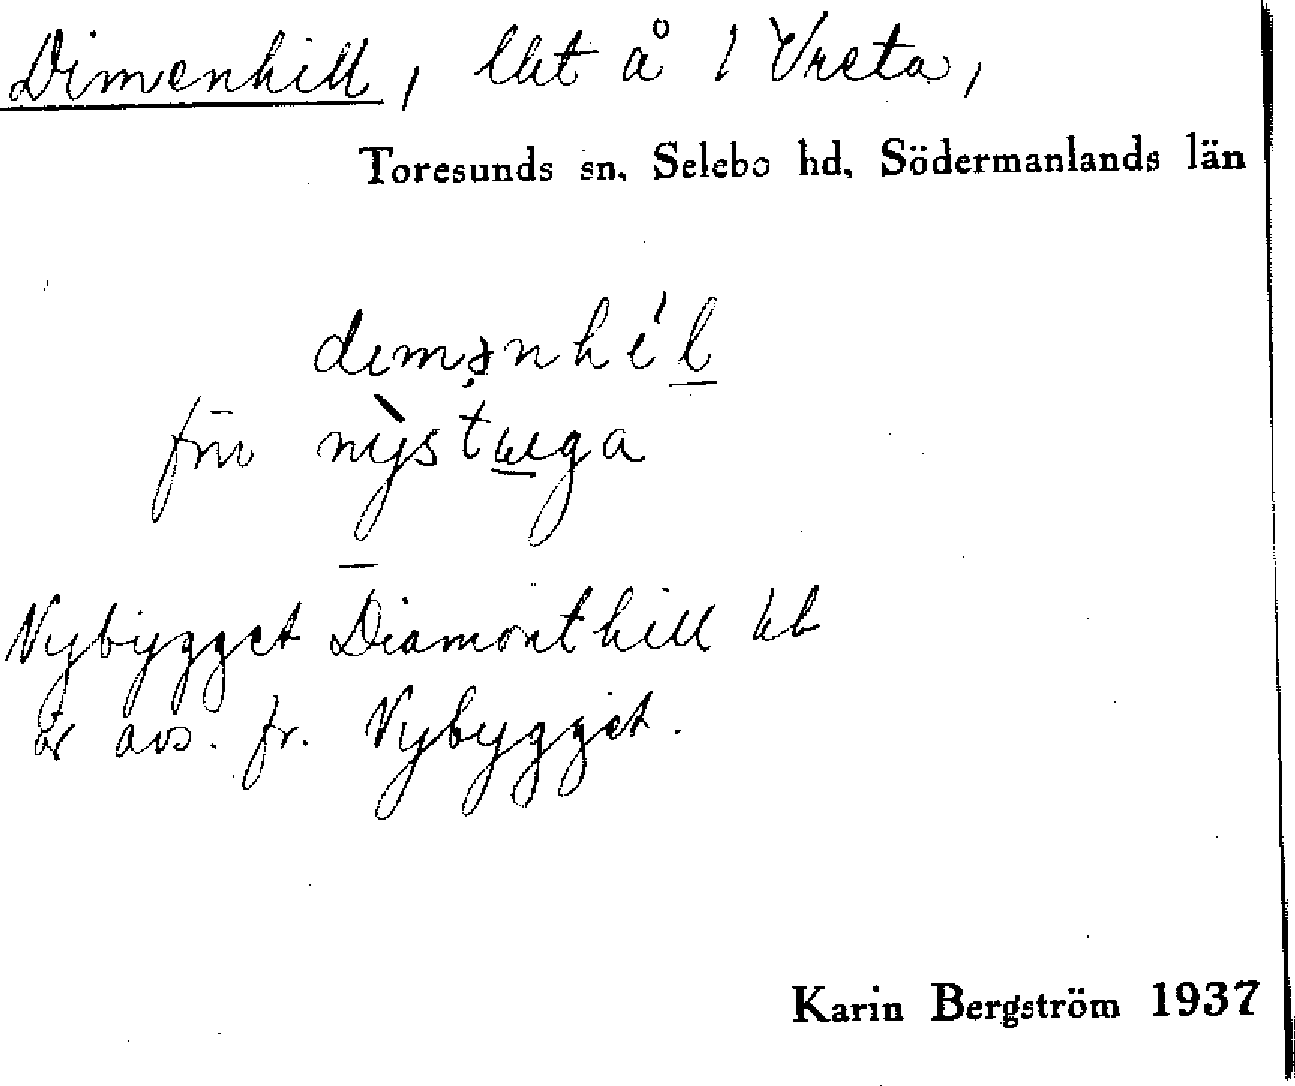 Dimenhill, lht å 1 Vreta,
Toresunds sn, Selebo hd, Södermanlands län
dımənhı́l
nỳstuga
Vybygget Diamonthill kb
är avs. fr. Vybygget.
Karin Bergström 1937